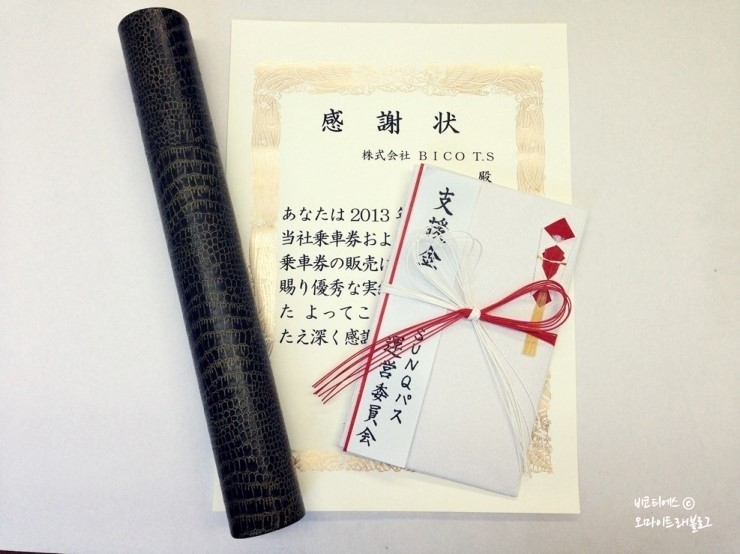 感謝状
株式会社 BICO T.S
殿
あなたは 2013
当社乗車券およ
乗車券の販売
賜り優秀な実
た よってこ
たえ深く感謝
支援金
SUNQパス
運営委員会
비코티에스 ©
오마이트래블로그